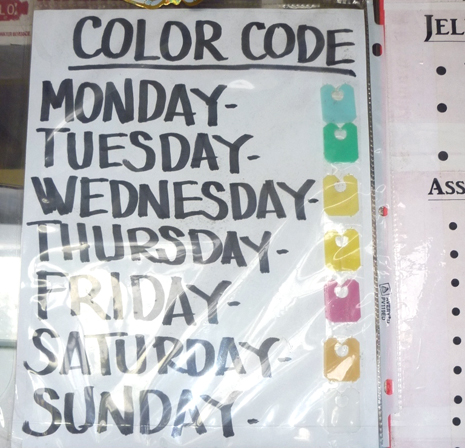 COLOR CODE
MONDAY-
TUESDAY-
WEDNESDAY-
THURSDAY-
FRIDAY-
SATURDAY-
SUNDAY-
JEL
ASS